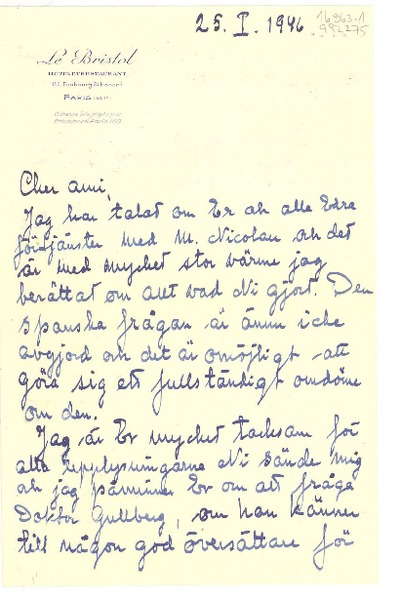 25. I. 1946
16.963.1
992275
Le Bristol
HOTEL ET RESTAURANT
112, Faubourg St Honoré
PARIS
Cher ami,
Jag har talat om Er och alle Edra
förtjänster med M. Nicolau och det
är med mycket stor värme jag
berättat om allt vad Ni gjort. Den
spanska frågan är ännu icke
avgjord och det är omöjligt att
göra sig ett fullständigt omdöme
om den.
Jag är Er mycket tacksam för
alla upplysningarne Ni sände mig
och jag påminner Er om att fråga
Doktor Gullberg, om han känner
till någon god översättare för